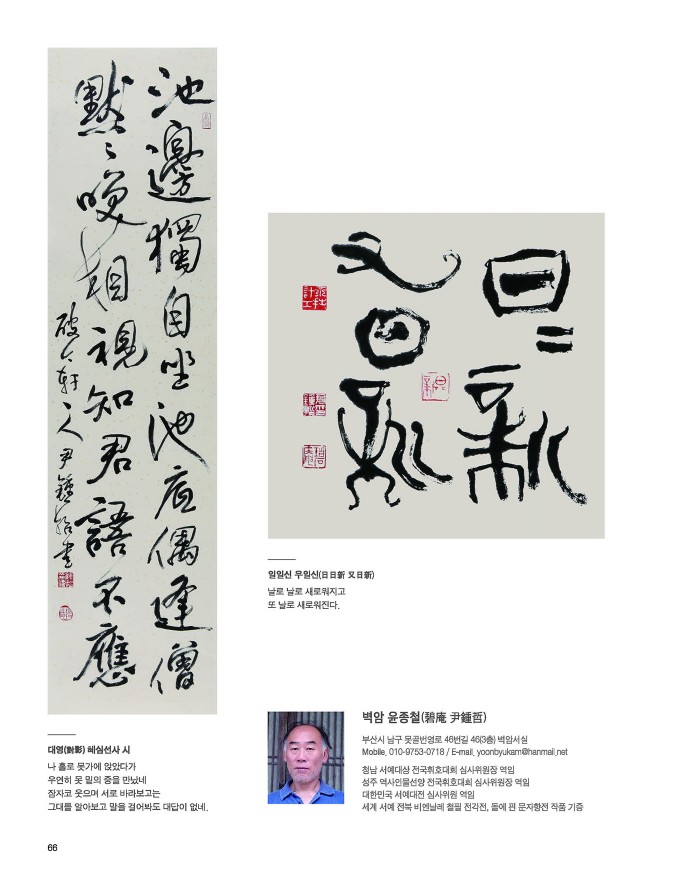 池邊獨自坐池底偶逢僧
默〻咲相視知君語不應
尹鍾哲書
日〻新
又日新
일일신 우일신(日日新 又日新)
날로 날로 새로워지고
또 날로 새로워진다.
대영(對影) 혜심선사 시
나 홀로 못가에 앉았다가
우연히 못 밑의 중을 만났네
잠자코 웃으며 서로 바라보고는
그대를 알아보고 말을 걸어봐도 대답이 없네.
벽암 윤종철(碧庵 尹鍾哲)
부산시 남구 못골번영로 46번길 46(3층) 벽암서실
Mobile. 010-9753-0718 / E-mail. yoonbyukam@hanmail.net
청남 서예대상 전국휘호대회 심사위원장 역임
성주 역사인물선양 전국휘호대회 심사위원장 역임
대한민국 서예대전 심사위원 역임
세계 서예 전북 비엔날레 철필 전각전, 돌에 핀 문자향전 작품 기증
66